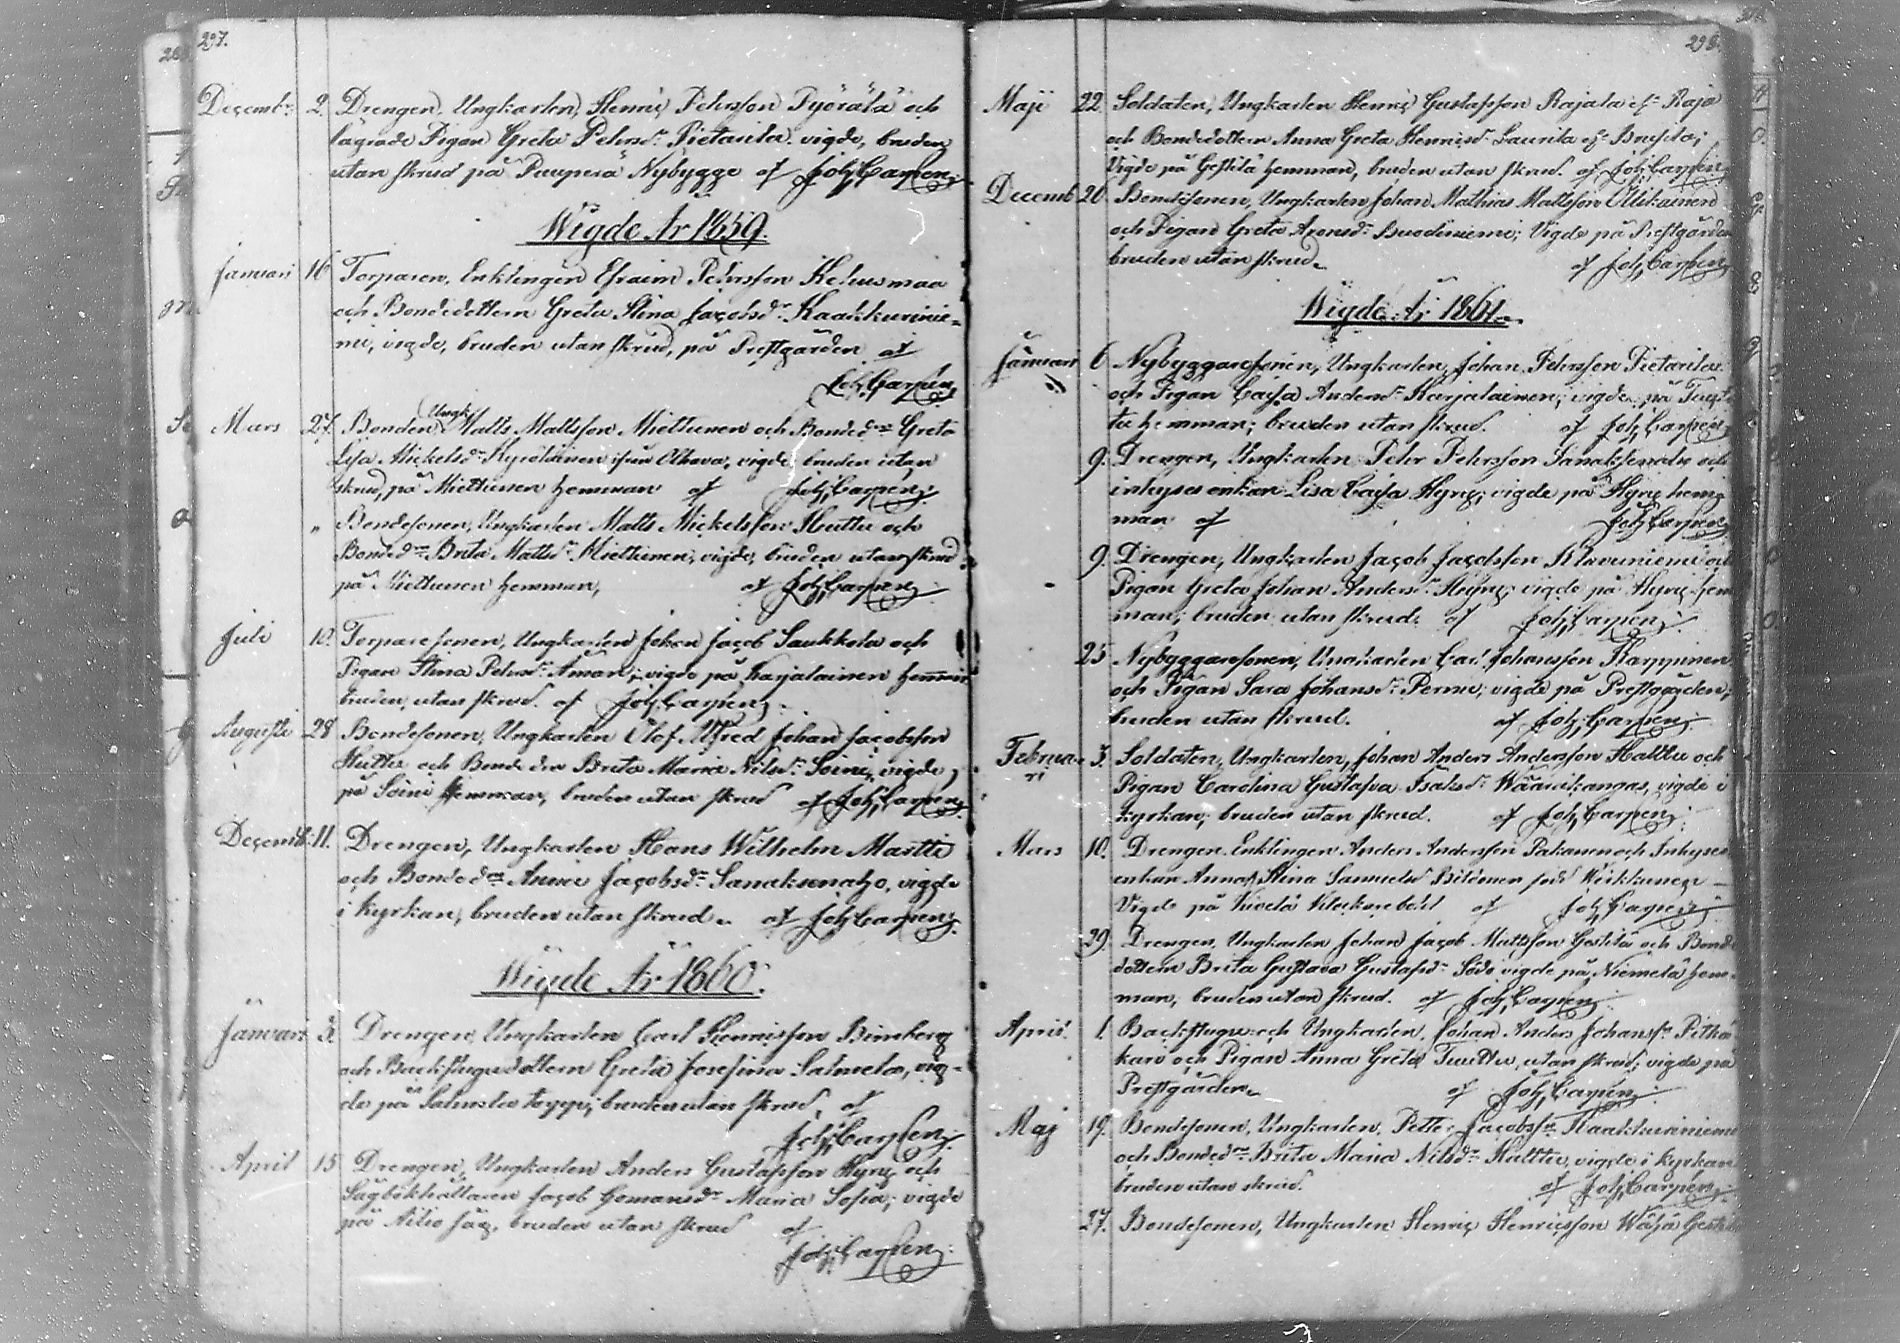 297.
Decembr 2. Drengen, Ungkarlen, Henric Pehrsson Pyörälä och
lägrade Pigan Greta Pehrsdr Pietarila. vigde, bruden
utan skrud på Puuperä Nybygge af Joh. Carpen.
Wigde År 1859.
Januari 16 Torparen, Enklingen Efraim Pehrsson Kehusmaa
och Bondedottern Greta Stina Jacobsdr Kaakkurinie-
mi, vigde, bruden utan skrud, på Prestgården af
Joh. Carpen
Mars 27. Bonden, Ungk. Matts Mattsson Miettunen och Bondedrn Greta
Lisa Mickelsdr ifrån Olhava, vigde bruden utan
skrud, på Miettunen hemman af Joh. Carpen.
" Bondesonen, Ungkarlen Matts Mickelsson Huttu och
Bondedrn Brita Mattsdr Miettunen, vigde, bruden utan skrud
på Miettunen hemman, af Joh. Carpen
Juli 10. Torparesonen, Ungkarlen Johan Jacob Saukkola och
Pigan Stina Pehrsdr Åman; vigde på Karjalainen hemman
bruden, utan skrud. af Joh. Carpen.
Augusti 28 Bondesonen, Ungkarlen Olof Alfred Johan Jacobsson
Huttu och Bonde drn Brita Maria Nilsdr Soini, vigde,
på Soini hemman, bruden utan skrud af Joh. Carpen.
Decemb: 11. Drengen, Ungkarlen Hans Wilhelm Martti
och Bondedrn Anna Jacobsdr Sanaksenaho, vigde
i kyrkan, bruden utan skrud. af Joh. Carpen.
Wigde År 1860.
Januari 3. Drengen, Ungkarlen Carl Henricsson Binnberg
och Backstugudottern Greta Josefina Salmela, vig-
de på Salmela torp; bruden utan skrud, af
Joh. Carpen.
April 15 Drengen, Ungkarlen Anders Gustafsson Hyry och
Sågbokhållaren Jacob Maria Sofia; vigde
på såg, bruden utan skrud af
Joh. Carpen.
298.
Maji 22. Soldaten, Ungkarlen Henric Gustafsson Rajala el. Raja
och Bondedottern Anna Greta Henricsdr Laurila el.
Vigde på Gestilä hemman, bruden utan skrud. af Joh. Carpen
Decemb 20. Bondesonen, Ungkarlen Johan Mathias Mattsson Ollikainen
och Pigan Greta Aronsdr Vuodiniemi; Vigde på Prestgården
bruden utan skrud. af Joh. Carpen
Wigde År 1861.
Januari 6 Nybyggaresonen, Ungkarlen, Johan Pehrsson Pietarila
och Pigan Cajsa Andersdr Karjalainen, vigde på
hemman; bruden utan skrud. af Joh. Carpen
9. Drengen, Ungkarlen Pehr Pehrsson Sanaksenaho och
inhyses enkan Lisa Cajsa Hyry; vigde på Hyry hem-
man af Joh. Carpen
9. Drengen, Ungkarlen Jacob Jacobsson Kiviniemi och
Pigan Greta Johan Andersdr Hyry; vigde på Hyry hem
man; bruden utan skrud. af Joh. Carpen.
25 Nybyggaresonen, Ungkarlen Carl Johansson Karppinen
och Pigan Sara Johansdr Pernu; vigde på Prestgården;
bruden utan skrud. af Joh. Carpen.
Februa-
ri 3. Soldaten, Ungkarlen, Johan Anders Andersson Hattu och
Pigan Carolina Gustafva Isaksdr Wäärälkangas, vigde i
kyrkan; bruden utan skrud. af Joh. Carpen.
Mars 10. Drengen Enklingen Anders Andersson Pakanen och Inhyses
enkan Anna Stina Samuelsdr född Wirkkunen
Vigde på Kivelä af Joh. Carpen.
29. Drengen, Ungkarlen Johan Jacob Mattsson Gestilä och Bonde
dottern Brita Gustava Gustafsdr vigde på Niemelä hem-
man, bruden utan skrud. af Joh. Carpen.
April. 1. Backstugu och Ungkarlen, Johan Anders Johansson Pitkä
kari och Pigan Anna Greta Tuuttu, utan skrud; vigde på
Prestgården. af Joh. Carpen.
Maj 19. Bondesonen, Ungkarlen, Petter Jacobsson Kaakkuriniemi
och Bondedrn Brita Maria Nilsdr Huttu, vigde i kyrkan
bruden utan skrud. af Joh. Carpen.
27. Bondesonen, Ungkarlen Henric Henricsson Wähä Gestilä